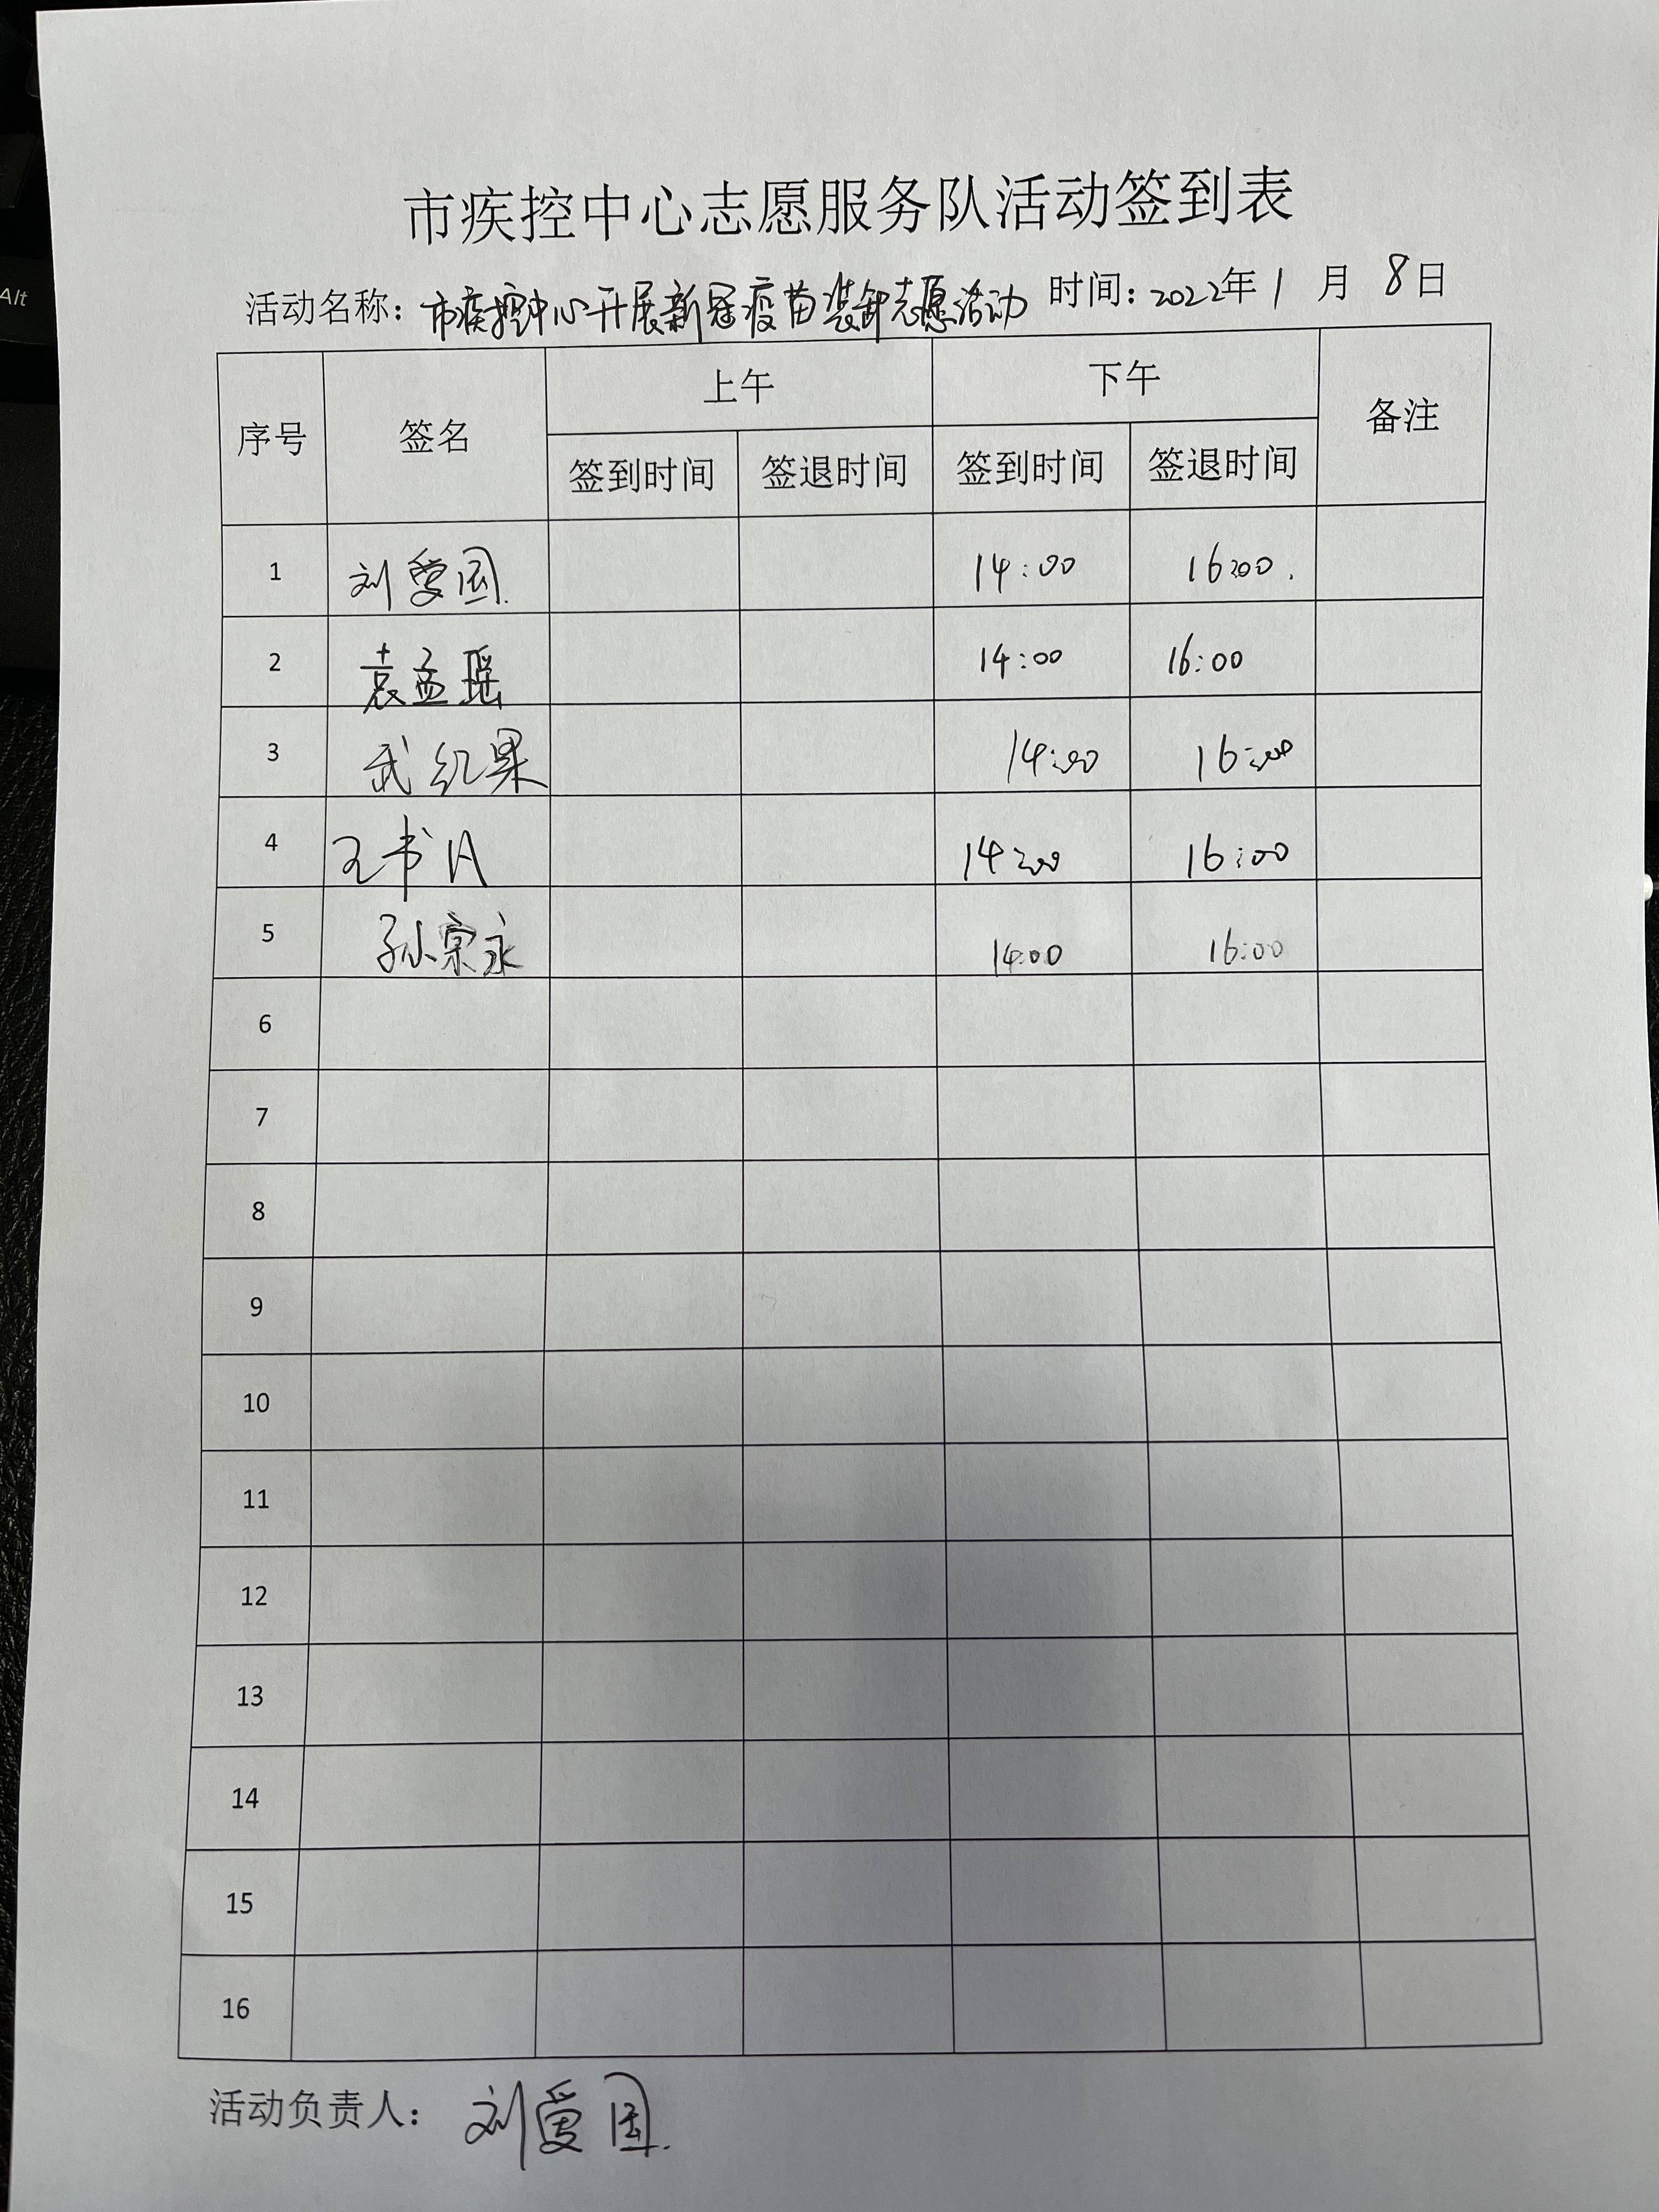 Alt
市疾控中心志愿服务队活动签到表
活动名称：市疾控中心开展新冠疫苗装卸志愿活动 时间：2022年1月8日
序号 签名 上午 下午 备注
签到时间 签退时间 签到时间 签退时间
1 刘爱国 14:00 16:00.
2 袁孟瑶 14:00 16:00
3 武红果 14:00 16:00
4 王书 14:00 16:00
5 孙宗永 14:00 16:00
6
7
8
9
10
11
12
13
14
15
16
活动负责人：刘爱国